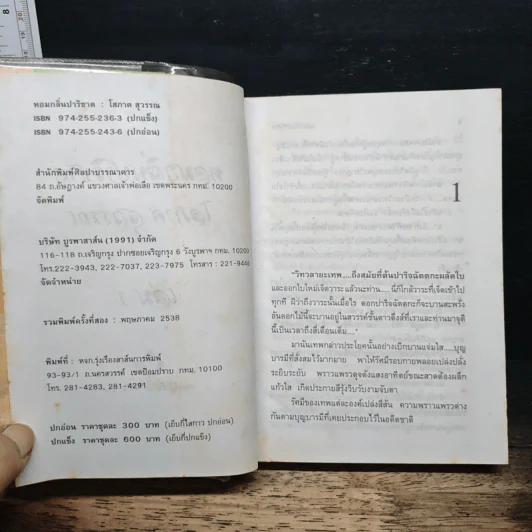 หอมกลิ่นปาริชาต : โสภาค สุวรรณ
ISBN 974-255-236-3 (ปกแข็ง)
ISBN 974-255-243-6 (ปกอ่อน)
สำนักพิมพ์ศิลปาบรรณาคาร
84 ถ.อัษฎางค์ แขวงศาลเจ้าพ่อเสือ เขตพระนคร กทม. 10200
จัดพิมพ์
บริษัท บูรพาสาส์น (1991) จำกัด
116-118 ถ.เจริญกรุง ปากซอยเจริญกรุง 6 วังบูรพาฯ กทม. 10200
โทร.222-3943, 222-7037, 223-7975 โทรสาร : 221-9446
จัดจำหน่าย
รวมพิมพ์ครั้งที่สอง : พฤษภาคม 2538
พิมพ์ที่ : หจก.รุ่งเรืองสาส์นการพิมพ์
93-93/1 ถ.นครสวรรค์ เขตป้อมปราบ กทม. 10100
โทร. 281-4283, 281-4291
ปกอ่อน ราคาชุดละ 300 บาท (เย็บกี่ไสกาว ปกอ่อน)
ปกแข็ง ราคาชุดละ 600 บาท (เย็บกี่ปกแข็ง)
1
"วิทวาลายะเทพ.....ถึงสมัยที่ต้นปาริจฉัตตกะผลัดใบ
และออกใบใหม่เจ็ดวาระ แล้วนะท่าน..... นี่ก็ใกล้วาระที่เจ็ดเข้าไป
ทุกที ผิว่าถึงวาระนั้นเมื่อไร ดอกปาริจฉัตตกะก็จะบานสะพรั่ง
อันดอกไม้นี้จะบานอยู่ในสวรรค์ชั้นดาวดึงส์ที่เราและท่านมาจุติ
นี้เป็นเวลาถึงสี่เดือนเต็ม...."
มานันเทพกล่าวประโยคนั้นอย่างเบิกบานแจ่มใส.....บุญ
บารมีที่สั่งสมไว้มากมาย พาให้รัศมีรอบกายพลอยเปล่งปลั่ง
ระยิบระยับ พราวแพรวดุจดั่งแสงอาทิตย์ขณะสาดต้องผลึก
แก้วใส เกิดประกายสีรุ้งวิบวับงามจับตา
รัศมีของเทพแต่ละองค์เปล่งสีสัน ความพราวแพรวต่าง
กันตามบุญบารมีที่เคยประกอบไว้ในอดีตชาติ